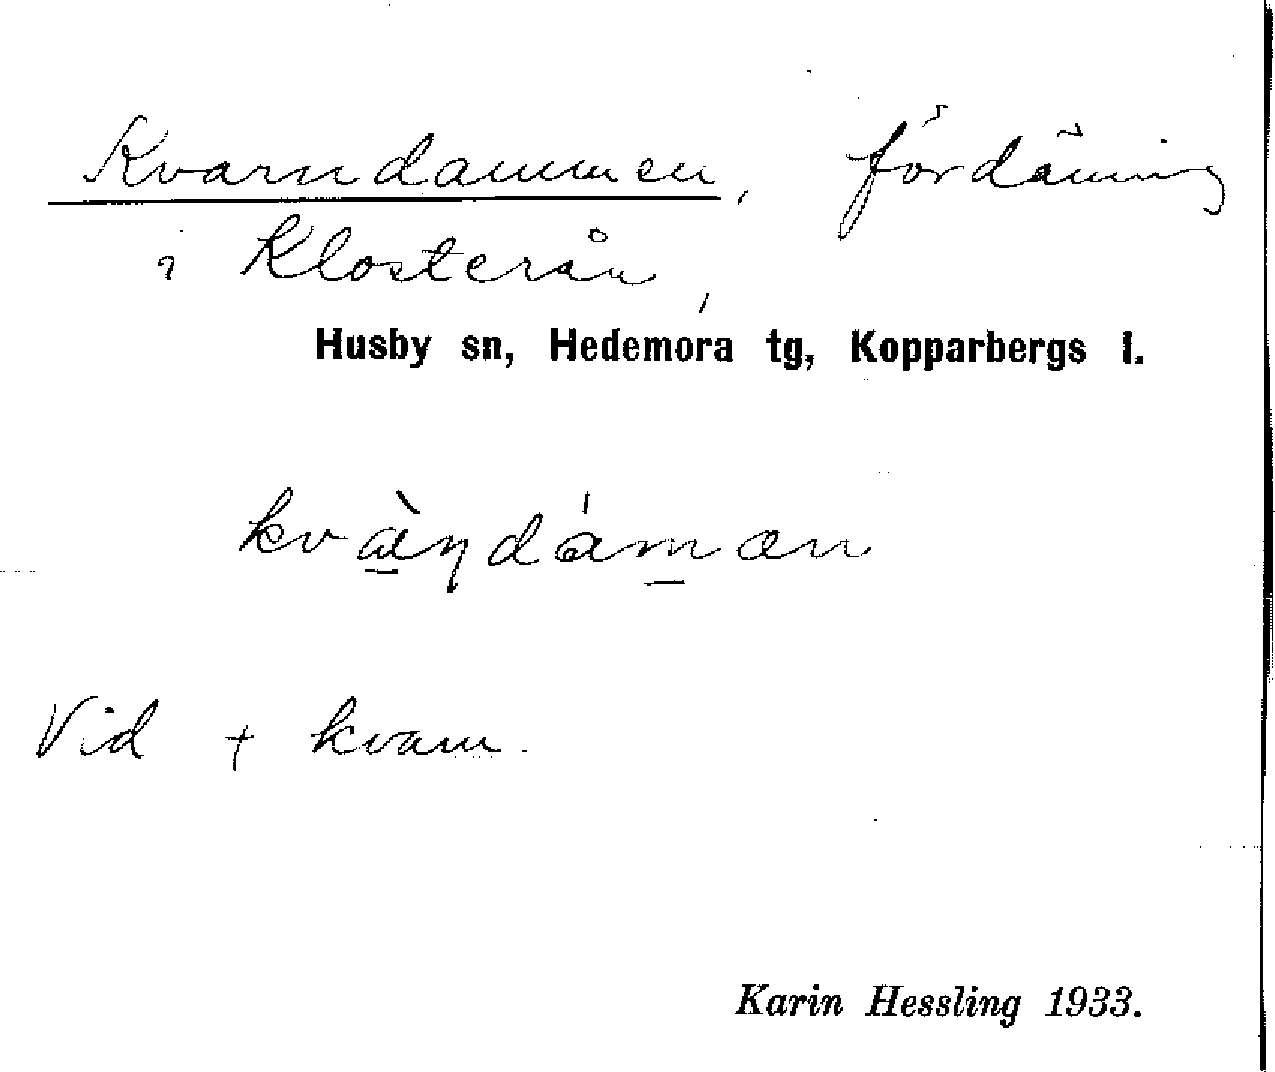 Kvarndammen, fördämning
i Klosterån,
Husby sn, Hedemora tg, Kopparbergs l.
kvàṇdámæn
Vid † kvarn.
Karin Hessling 1933.